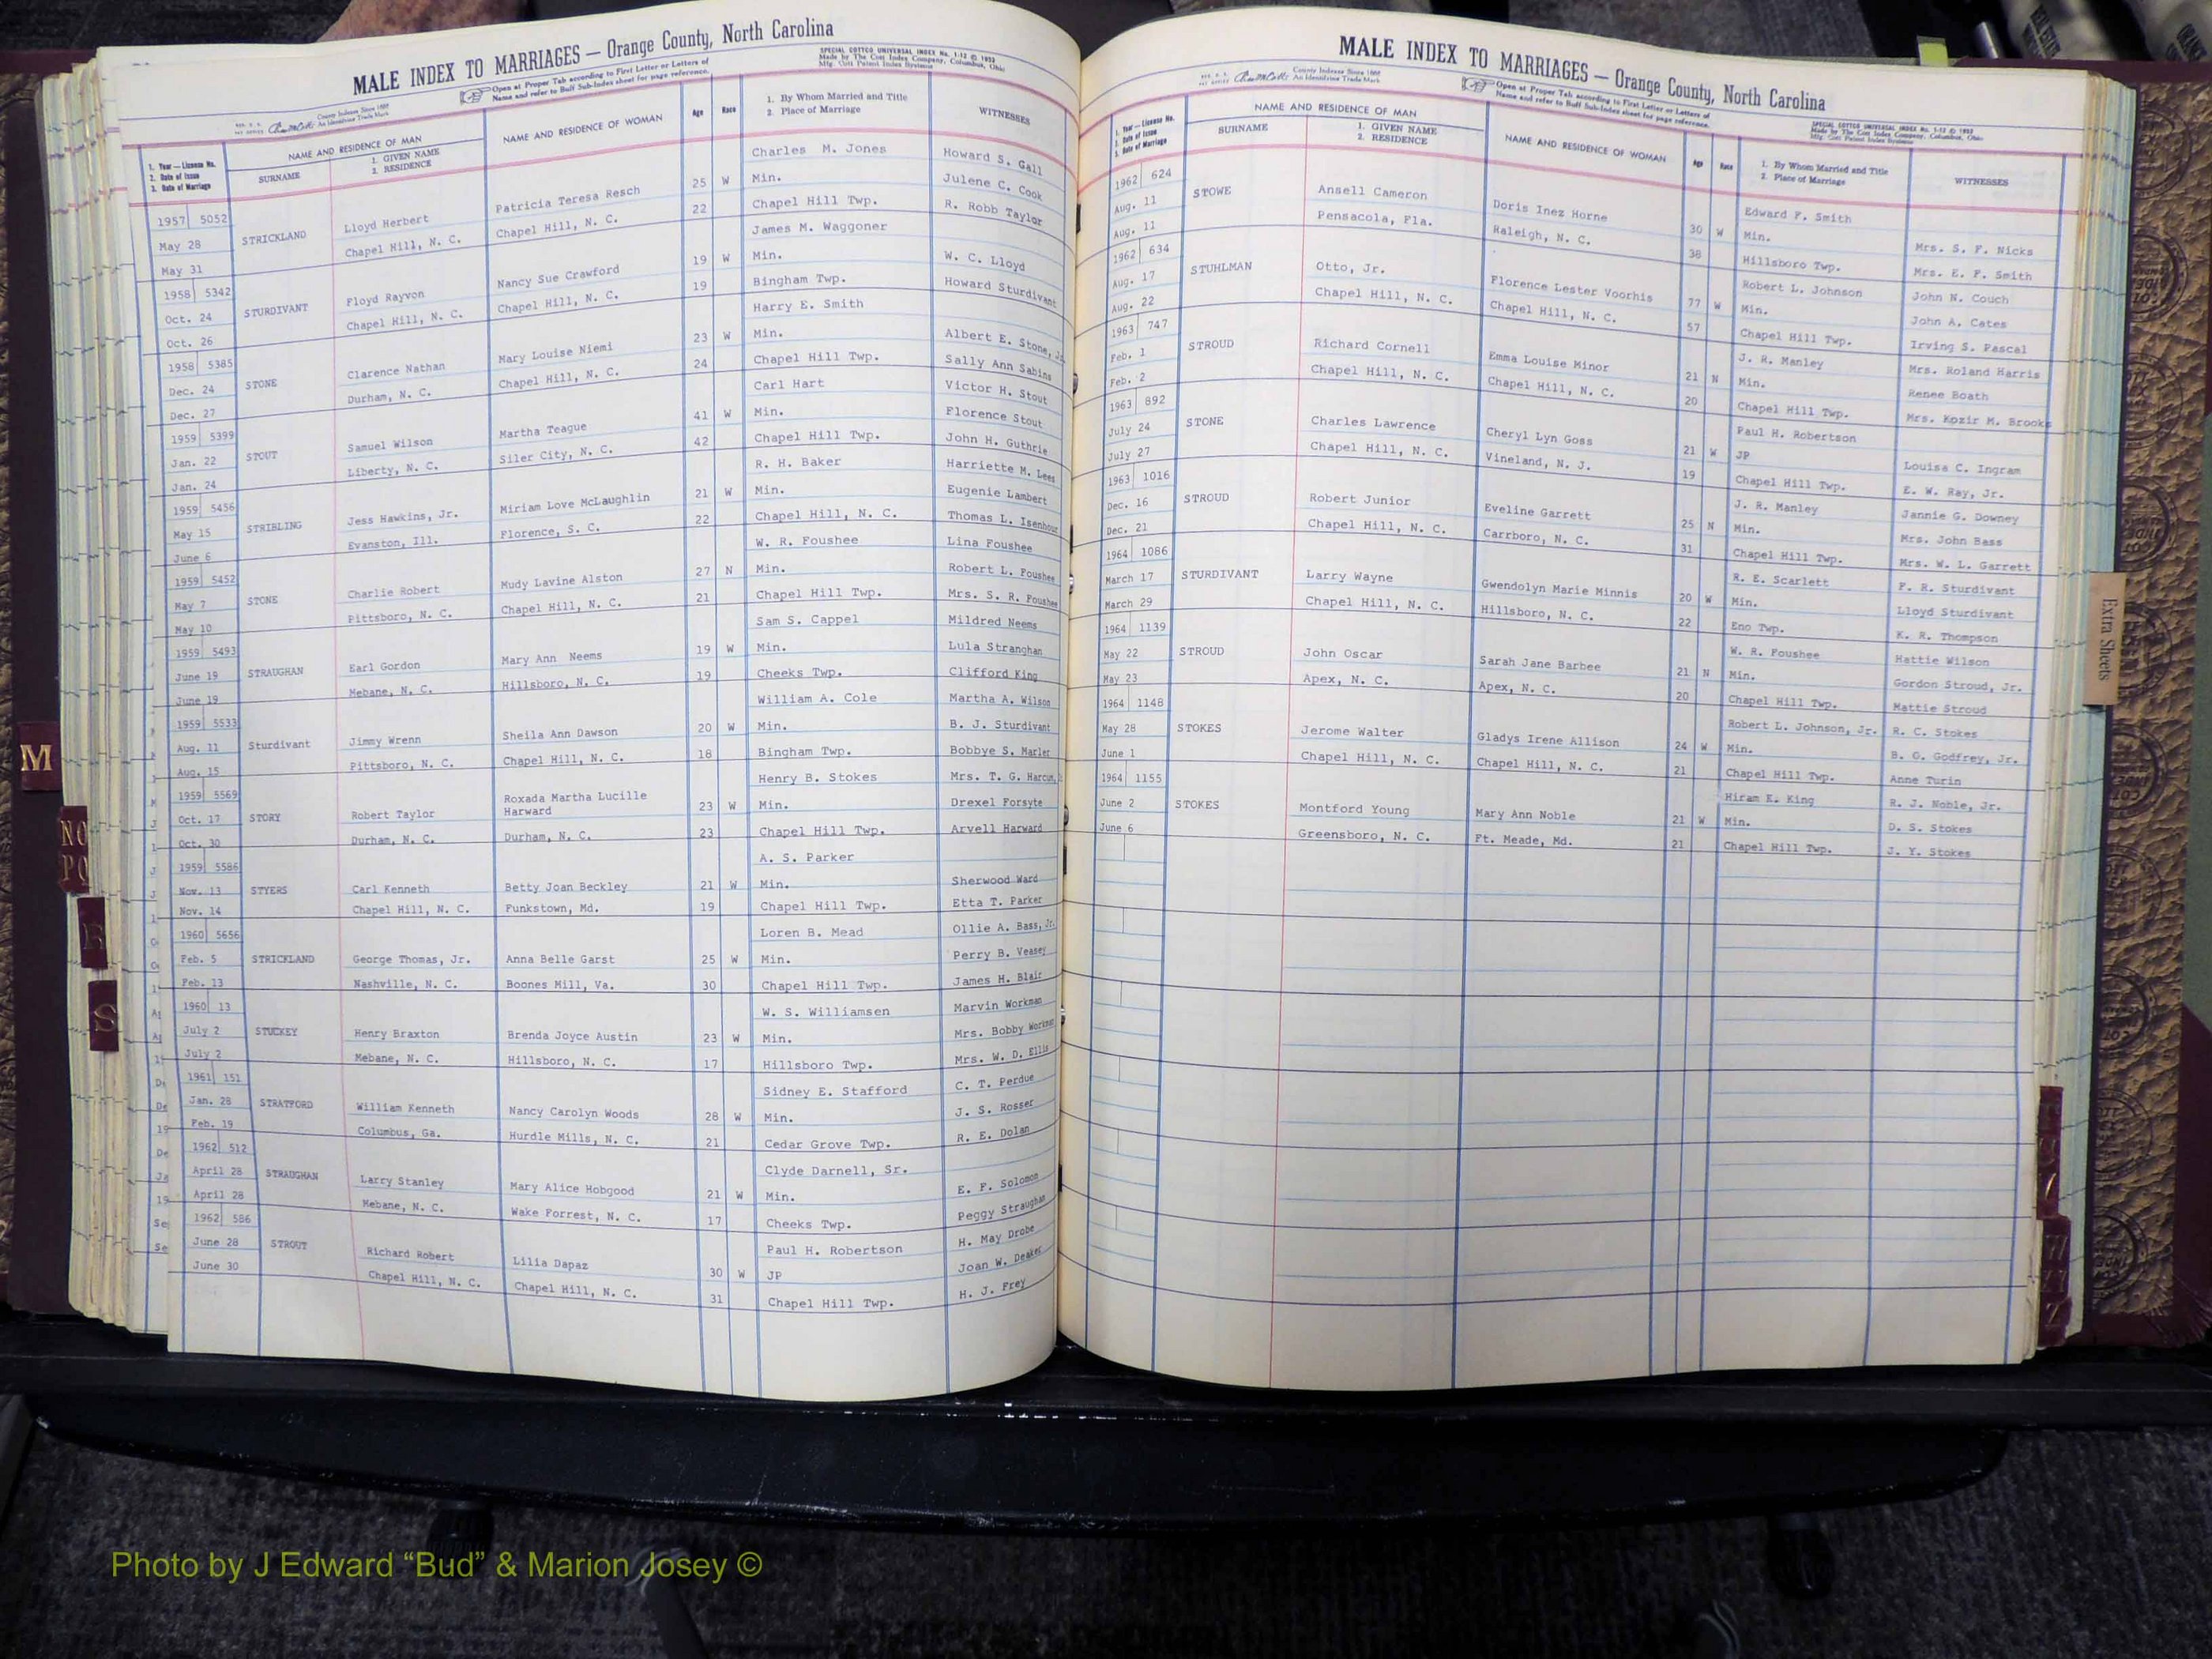 MALE INDEX TO MARRIAGES — Orange County, North Carolina
Open at Proper Tab according to First Letter or Letters of
Name and refer to Buff Sub-Index sheet for page reference.
SPECIAL COTTCO UNIVERSAL INDEX No. 1-12 © 1953
Made by The Cott Index Company, Columbus, Ohio
Mfg. Cott Patent Index Systems
County Indexes Since 1888
An Identifying Trade Mark
1. Year — License No.
2. Date of Issue
3. Date of Marriage
NAME AND RESIDENCE OF MAN
SURNAME
1. GIVEN NAME
2. RESIDENCE
NAME AND RESIDENCE OF WOMAN
Age
Race
1. By Whom Married and Title
2. Place of Marriage
WITNESSES
1957 5052 Charles M. Jones Howard S. Gall
May 28 STRICKLAND Lloyd Herbert Patricia Teresa Resch 25 W Min. Julene C. Cook
May 31 Chapel Hill, N. C. Chapel Hill, N. C. 22 Chapel Hill Twp. R. Robb Taylor
1958 5342 James M. Waggoner
Oct. 24 STURDIVANT Floyd Rayvon Nancy Sue Crawford 19 W Min. W. C. Lloyd
Oct. 26 Chapel Hill, N. C. Chapel Hill, N. C. 19 Bingham Twp. Howard Sturdivant
1958 5385 Harry E. Smith
Dec. 24 STONE Clarence Nathan Mary Louise Niemi 23 W Min. Albert E. Stone, Jr.
Dec. 27 Durham, N. C. Chapel Hill, N. C. 24 Chapel Hill Twp. Sally Ann Sabins
1959 5399 Carl Hart Victor H. Stout
Jan. 22 STOUT Samuel Wilson Martha Teague 41 W Min. Florence Stout
Jan. 24 Liberty, N. C. Siler City, N. C. 42 Chapel Hill Twp. John H. Guthrie
1959 5456 R. H. Baker Harriette M. Lees
May 15 STRIBLING Jess Hawkins, Jr. Miriam Love McLaughlin 21 W Min. Eugenie Lambert
June 6 Evanston, Ill. Florence, S. C. 22 Chapel Hill, N. C. Thomas L. Isenhour
1959 5452 W. R. Foushee Lina Foushee
May 7 STONE Charlie Robert Mudy Lavine Alston 27 N Min. Robert L. Foushee
May 10 Pittsboro, N. C. Chapel Hill, N. C. 21 Chapel Hill Twp. Mrs. S. R. Foushee
1959 5493 Sam S. Cappel Mildred Neems
June 19 STRAUGHAN Earl Gordon Mary Ann Neems 19 W Min. Lula Stranghan
June 19 Mebane, N. C. Hillsboro, N. C. 19 Cheeks Twp. Clifford King
1959 5533 William A. Cole Martha A. Wilson
Aug. 11 Sturdivant Jimmy Wrenn Sheila Ann Dawson 20 W Min. B. J. Sturdivant
Aug. 15 Pittsboro, N. C. Chapel Hill, N. C. 18 Bingham Twp. Bobbye S. Marler
1959 5569 Henry B. Stokes Mrs. T. G. Harcus,
Oct. 17 STORY Robert Taylor Roxada Martha Lucille Harward 23 W Min. Drexel Forsyte
Oct. 30 Durham, N. C. Durham, N. C. 23 Chapel Hill Twp. Arvell Harward
1959 5586 A. S. Parker
Nov. 13 STYERS Carl Kenneth Betty Joan Beckley 21 W Min. Sherwood Ward
Nov. 14 Chapel Hill, N. C. Funkstown, Md. 19 Chapel Hill Twp. Etta T. Parker
1960 5656 Loren B. Mead Ollie A. Bass, Jr.
Feb. 5 STRICKLAND George Thomas, Jr. Anna Belle Garst 25 W Min. Perry B. Veasey
Feb. 13 Nashville, N. C. Boones Mill, Va. 30 Chapel Hill Twp. James H. Blair
1960 13 W. S. Williamsen Marvin Workman
July 2 STUCKEY Henry Braxton Brenda Joyce Austin 23 W Min. Mrs. Bobby Workman
July 2 Mebane, N. C. Hillsboro, N. C. 17 Hillsboro Twp. Mrs. W. D. Ellis
1961 151 Sidney E. Stafford C. T. Perdue
Jan. 28 STRATFORD William Kenneth Nancy Carolyn Woods 28 W Min. J. S. Rosser
Feb. 19 Columbus, Ga. Hurdle Mills, N. C. 21 Cedar Grove Twp. R. E. Dolan
1962 512 Clyde Darnell, Sr.
April 28 STRAUGHAN Larry Stanley Mary Alice Hobgood 21 W Min. E. F. Solomon
April 28 Mebane, N. C. Wake Forrest, N. C. 17 Cheeks Twp. Peggy Straughan
1962 586 Paul H. Robertson H. May Drobe
June 28 STROUT Richard Robert Lilia Dapaz 30 W JP Joan W. Deaker
June 30 Chapel Hill, N. C. Chapel Hill, N. C. 31 Chapel Hill Twp. H. J. Frey
MALE INDEX TO MARRIAGES — Orange County, North Carolina
County Indexes Since 1888
An Identifying Trade Mark
Open at Proper Tab according to First Letter or Letters of
Name and refer to Buff Sub-Index sheet for page reference.
SPECIAL COTTCO UNIVERSAL INDEX No. 1-12 © 1953
Made by The Cott Index Company, Columbus, Ohio
Mfg. Cott Patent Index Systems
1. Year — License No.
2. Date of Issue
3. Date of Marriage
NAME AND RESIDENCE OF MAN
SURNAME
1. GIVEN NAME
2. RESIDENCE
NAME AND RESIDENCE OF WOMAN
Age
Race
1. By Whom Married and Title
2. Place of Marriage
WITNESSES
1962 624 Edward F. Smith
Aug. 11 STOWE Ansell Cameron Doris Inez Horne 30 W Min. Mrs. S. F. Nicks
Aug. 11 Pensacola, Fla. Raleigh, N. C. 38 Hillsboro Twp. Mrs. E. F. Smith
1962 634 Robert L. Johnson John N. Couch
Aug. 17 STUHLMAN Otto, Jr. Florence Lester Voorhis 77 W Min. John A. Cates
Aug. 22 Chapel Hill, N. C. Chapel Hill, N. C. 57 Chapel Hill Twp. Irving S. Pascal
1963 747 J. R. Manley Mrs. Roland Harris
Feb. 1 STROUD Richard Cornell Emma Louise Minor 21 N Min. Renee Boath
Feb. 2 Chapel Hill, N. C. Chapel Hill, N. C. 20 Chapel Hill Twp. Mrs. Kozir M. Brooks
1963 892 Paul H. Robertson
July 24 STONE Charles Lawrence Cheryl Lyn Goss 21 W JP Louisa C. Ingram
July 27 Chapel Hill, N. C. Vineland, N. J. 19 Chapel Hill Twp. E. W. Ray, Jr.
1963 1016 J. R. Manley Jannie G. Downey
Dec. 16 STROUD Robert Junior Eveline Garrett 25 N Min. Mrs. John Bass
Dec. 21 Chapel Hill, N. C. Carrboro, N. C. 31 Chapel Hill Twp. Mrs. W. L. Garrett
1964 1086 R. E. Scarlett F. R. Sturdivant
March 17 STURDIVANT Larry Wayne Gwendolyn Marie Minnis 20 W Min. Lloyd Sturdivant
March 29 Chapel Hill, N. C. Hillsboro, N. C. 22 Eno Twp. K. R. Thompson
1964 1139 W. R. Foushee Hattie Wilson
May 22 STROUD John Oscar Sarah Jane Barbee 21 N Min. Gordon Stroud, Jr.
May 23 Apex, N. C. Apex, N. C. 20 Chapel Hill Twp. Mattie Stroud
1964 1148 Robert L. Johnson, Jr. R. C. Stokes
May 28 STOKES Jerome Walter Gladys Irene Allison 24 W Min. B. G. Godfrey, Jr.
June 1 Chapel Hill, N. C. Chapel Hill, N. C. 21 Chapel Hill Twp. Anne Turin
1964 1155 Hiram E. King R. J. Noble, Jr.
June 2 STOKES Montford Young Mary Ann Noble 21 W Min. D. S. Stokes
June 6 Greensboro, N. C. Ft. Meade, Md. 21 Chapel Hill Twp. J. Y. Stokes
Extra Sheets
M
R
S
Photo by J Edward “Bud” & Marion Josey ©